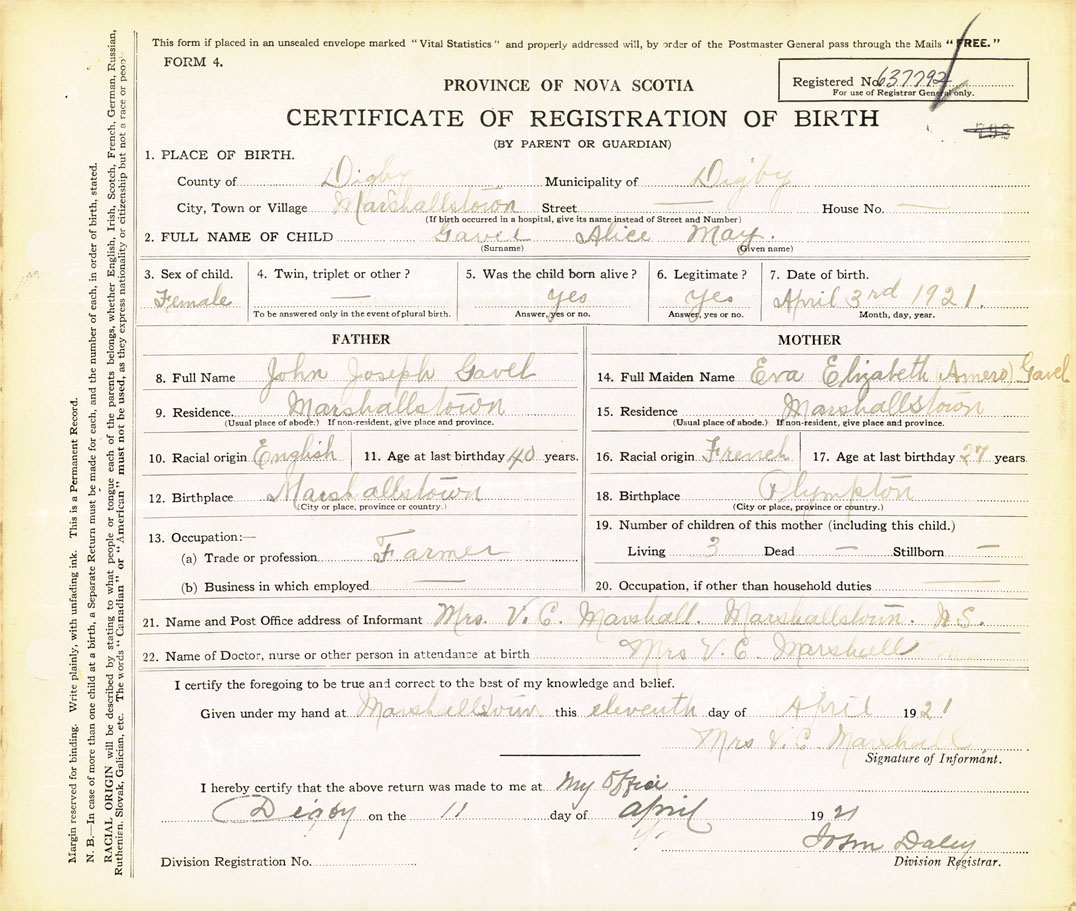 This form if placed in an unsealed envelope marked "Vital Statistics" and properly addressed will, by order of the Postmaster General pass through the Mails "FREE."
FORM 4.
Registered No. 637792
For use of Registrar General only.
PROVINCE OF NOVA SCOTIA
CERTIFICATE OF REGISTRATION OF BIRTH
(BY PARENT OR GUARDIAN)
1. PLACE OF BIRTH.
County of Digby Municipality of Digby
City, Town or Village Marshallstown Street — House No. —
(If birth occurred in a hospital, give its name instead of Street and Number)
2. FULL NAME OF CHILD Gavel Alice May.
(Surname) (Given name)
3. Sex of child. 4. Twin, triplet or other? 5. Was the child born alive? 6. Legitimate? 7. Date of birth.
Female — yes yes April 3rd 1921.
To be answered only in the event of plural birth. Answer, yes or no. Answer, yes or no. Month, day, year.
FATHER
8. Full Name John Joseph Gavel
9. Residence. Marshallstown
(Usual place of abode.) If non-resident, give place and province.
10. Racial origin English 11. Age at last birthday 40 years.
12. Birthplace Marshallstown
(City or place, province or country.)
13. Occupation:—
(a) Trade or profession Farmer
(b) Business in which employed —
MOTHER
14. Full Maiden Name Eva Elizabeth (Amero) Gavel
15. Residence Marshallstown
(Usual place of abode.) If non-resident, give place and province.
16. Racial origin French 17. Age at last birthday 27 years.
18. Birthplace Plympton
(City or place, province or country.)
19. Number of children of this mother (including this child.)
Living 3 Dead — Stillborn —
20. Occupation, if other than household duties —
21. Name and Post Office address of Informant Mrs. V. C. Marshall. Marshallstown. N.S.
22. Name of Doctor, nurse or other person in attendance at birth Mrs V. C. Marshall
I certify the foregoing to be true and correct to the best of my knowledge and belief.
Given under my hand at Marshallstown this eleventh day of April 1921
Mrs V. C. Marshall
Signature of Informant.
I hereby certify that the above return was made to me at My Office
Digby on the 11 day of April 1921
John Daley
Division Registrar.
Division Registration No.
Margin reserved for binding. Write plainly, with unfading ink. This is a Permanent Record.
N. B.—In case of more than one child at a birth, a Separate Return must be made for each, and the number of each, in order of birth, stated.
RACIAL ORIGIN will be described by stating to what people or tongue each of the parents belongs, whether English, Irish, Scotch, French, German, Russian,
Ruthenian, Slovak, Galician, etc. The words "Canadian" or "American" must not be used, as they express nationality or citizenship but not a race or people